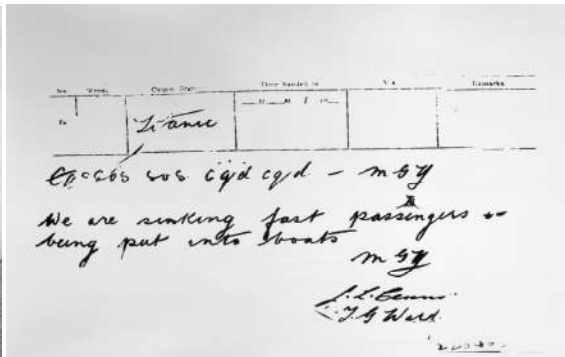 No. Words. Origin. Station. Time handed in. Via. Remarks.
To
H. M. 19
Titanic
sos sos cqd cqd - MGY
We are sinking fast passengers
being put into boats
MGY